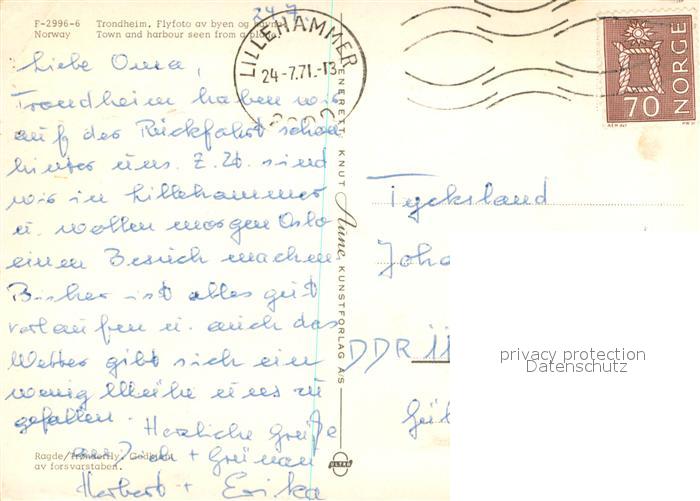 F-2996-6 Trondheim. Flyfoto av byen og havnen
Norway Town and harbour seen from a plane
24.7.
LILLEHAMMER
24-7.71.-13
NORGE
70
Liebe Oma,
Trondheim haben wir
auf der Rückfahrt schon
hinter uns. Z. Zt. sind
wir in Lillehammer
u. wollen morgen Oslo
einen Besuch machen
Bisher ist alles gut
verlaufen u. auch das
Wetter gibt sich ein
wenig Mühe uns zu
gefallen.
Herzliche Grüße
Herbert + Erika
ENERETT: KNUT Aune KUNSTFORLAG A/S
Joha
DDR 11
privacy protection
Datenschutz
Ragde/Fjellanger Godkjent
av forsvarstaben.
ULTRA